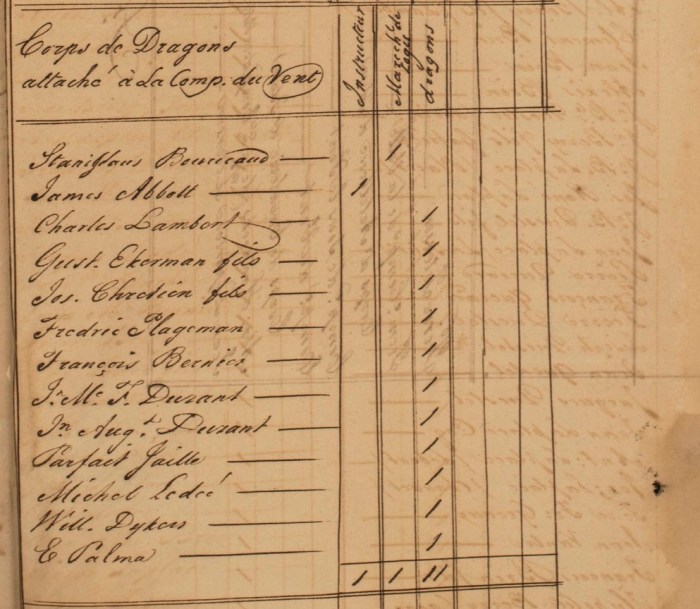 Corps de Dragons
attaché à la Comp. du Vent
Instructeur
Marech' de Logis
dragons
Stanislaus 1
James Abbott 1
Charles Lambert 1
Gust. Ekerman fils 1
Jos. Chretién fils 1
Fredric Hageman 1
François Bernier 1
J. Mc. F. Duzant 1
Jn Augt. Duzant 1
Parfait Jaille 1
Michel Ledeé 1
Will. Dykers 1
E. Palma 1
1 1 11